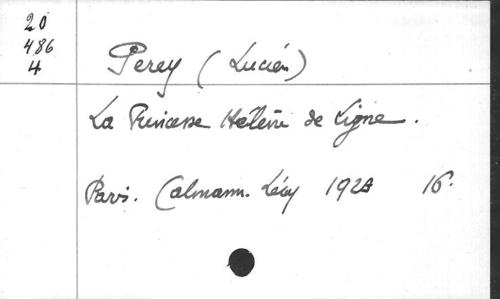 20
486
4
Perey (Lucien)
La Princesse Hélène de Ligne.
Paris. Calmann. Lévy 1924 16.